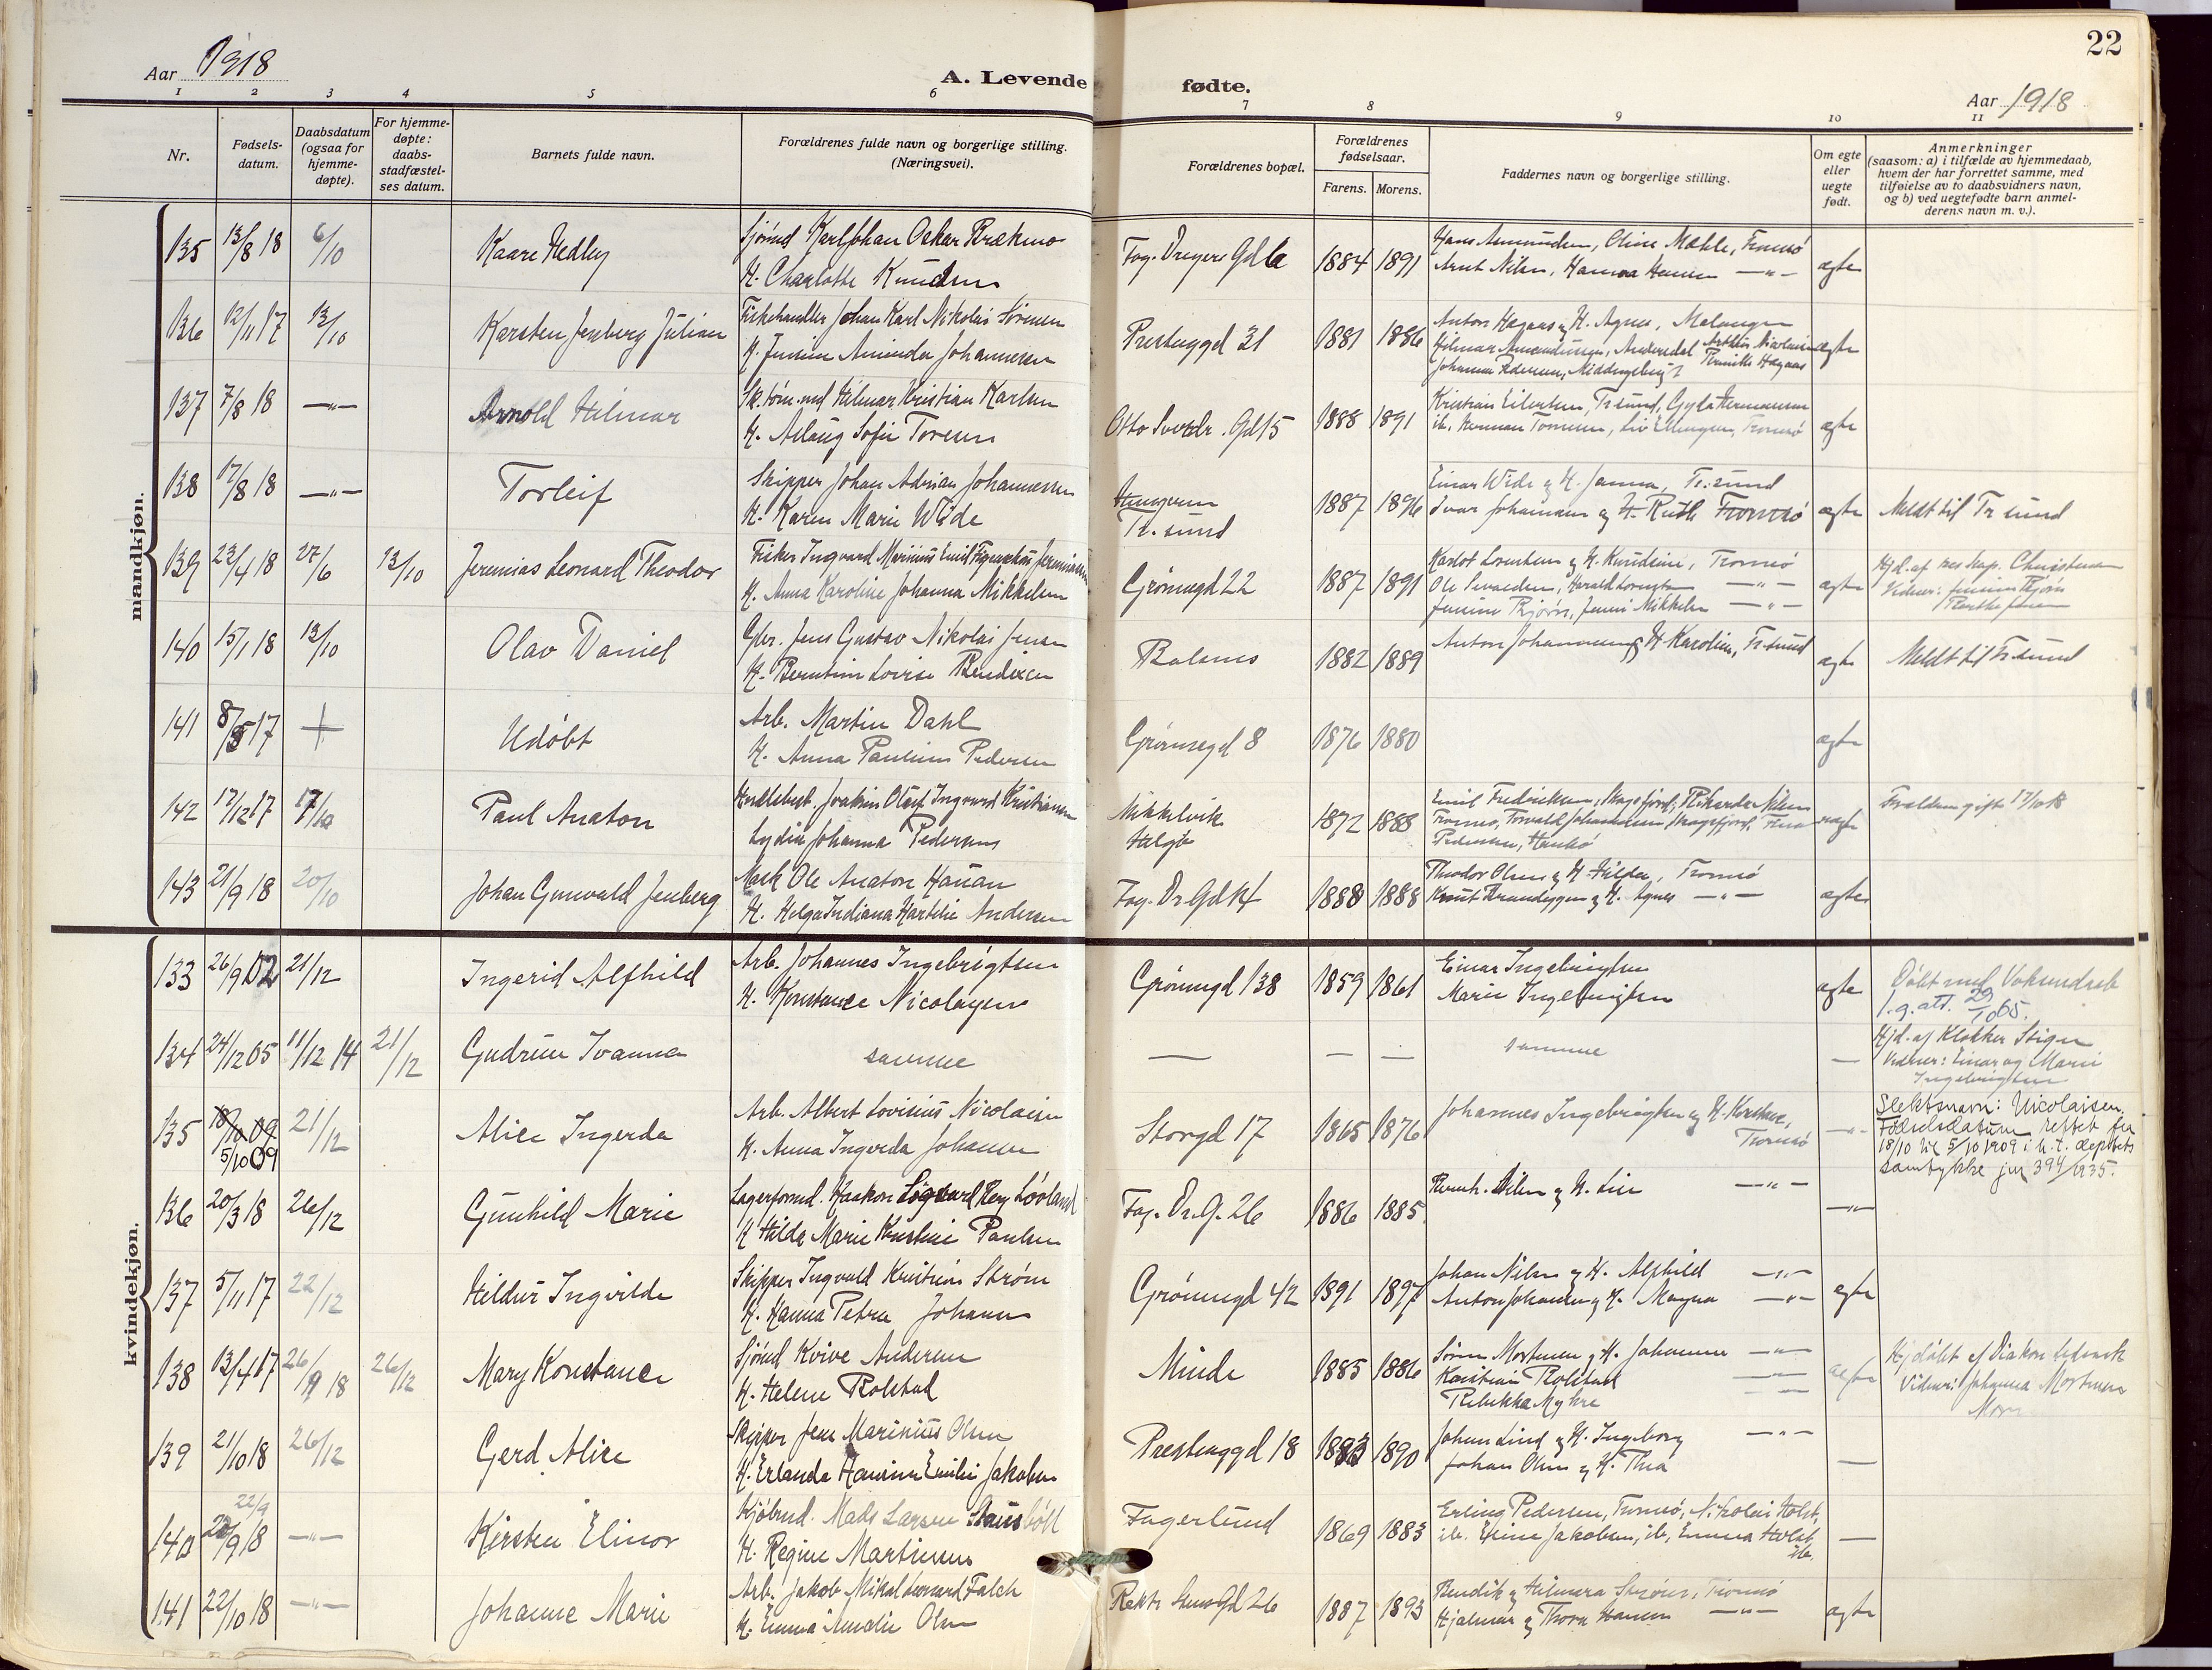 22
Aar 1918
A. Levende
fødte.
Aar 1918
1 2 3 4 5 6 7 8 9 10 11
Nr.
Fødsels-
datum.
Daabsdatum
(ogsaa for
hjemme-
døpte).
For hjemme-
døpte:
daabs-
stadfæstel-
ses datum.
Barnets fulde navn.
Forældrenes fulde navn og borgerlige stilling.
(Næringsvei).
Forældrenes bopæl.
Forældrenes
fødselsaar.
Farens. Morens.
Faddernes navn og borgerlige stilling.
Om egte
eller
uegte
født.
Anmerkninger
(saasom: a) i tilfælde av hjemmedaab,
hvem der har forrettet samme, med
tilføielse av to daabsvidners navn,
og b) ved uegtefødte barn anmel-
derens navn m. v.).
mandkjøn.
135 13/8 18 6/10 Kaare Hedley
Sjømd Karl Johan Oskar Brækmo
H. Charlotte Knudsen
Fog. Dreyers Gd 6a 1884 1891
Hans Amundsen, Oline Mæhle, Tromsø
Arnt Nilsen, Hanna Hansen —"—
ægte
136 12/11 17 13/10 Karsten Jenberg Julian
Fiskehandler Johan Karl Nikolai Sørensen
H. Jensine Aminda Johannesen
Prestenggd 31 1881 1886
Anton Hagaas og H. Agnes, Malangen
Hilmar Amundsen,
Johanna Pedersen,
ægte
137 7/8 18 —"— Arnold Hilmar
Hilmar Kristian Karlsen
H. Aslaug Sofie Toresen
Otto Sverdr. Gd 15 1888 1891
Kristian Eilertsen, Tr.sund,
ægte
138 17/8 18 —"— Torleif
Skipper Johan Adrian Johannesen
H. Karen Marie Wide
Tr. sund 1887 1896
Einar Wide og H. Janna, Tr. sund
Ivar Johansen og H. Ruth Tromsø
ægte Meldt til Tr sund
139 23/4 18 27/6 13/10 Jeremias Leonard Theodor
Fisker Ingvard Marinius Emil
H. Anna Karoline Johanna Mikkelsen
Grønnegd 22 1887 1891
Karlot Lorentsen og H. Knudsine, Tromsø
Jensine Bjørn, Jenni Mikkelsen —"—
ægte
Hjd. af res kap. Christensen
Vidner: Jensine Bjørn
140 15/1 18 13/10 Olav Daniel
Gbr. Jens Gustav Nikolai Jensen
H. Berntine Lovise Bendixen
Balsnes 1882 1889
Anton Johannesen og H. Karoline, Tr.sund
ægte Meldt til Tr.sund
141 8/5 17 + Udøbt
Arb. Martin Dahl
H. Anna Pauline Pedersen
Grønnegd 8 1876 1880
ægte
142 17/12 17 17/10 Paul Anaton
Joakim Oluf Ingvard Kristiansen
Lydia Johanna Pedersen
Mikkelvik
Helgø 1872 1888
Emil Fredriksen,
Pedersen,
uægte
143 21/9 18 20/10 Johan Gunvald Jenberg
Mask Ole Anaton Hauan
H. Helga Indiana Andersen
Fog. Dr. Gd 14 1888 1888
Theodor Olsen og H. Hilda, Tromsø
og H. Agnes —"—
ægte
kvindekjøn.
133 26/9 02 21/12 Ingerid Alfhild
Arb. Johannes Ingebrigtsen
H. Konstance Nicolaysen
Grønnegd 138 1859 1861
Einar Ingebrigtsen
Marie Ingebrigtsen
ægte
1.g.att. 29/10 65.
134 24/12 05 11/12 14 21/12 Gudrun Ivanna
samme
— — — samme —
Hjd. af Klokker
Vidner: Einar og Marie
Ingebrigtsen
135 18/10 09 21/12 Alice Ingerda
5/10 09
Arb. Albert Lovisius Nicolaisen
H. Anna Ingerda Johansen
Storgd 17 1865 1876
Johannes Ingebrigtsen og H. Konstanse,
Tromsø
—"—
Slektsnavn: Nicolaisen.
Fødselsdatum rettet fra
18/10 til 5/10 1909 i h.t. dep'tets
samtykke jnr 394/1935.
136 20/3 18 26/12 Gunhild Marie
Lagerformd. Haakon Sigvard Løvland
H. Hilda Marie Kristine Paulsen
Fog. Dr. G. 26 1886 1885
Bernh. Nilsen og H. Lise —"—
—"—
137 5/11 17 22/12 Hildur Ingvilda
Skipper Ingvald Kristian Strøm
H. Hanna Petra Johansen
Grønnegd 42 1891 1897
Johan Nilsen og H. Alfhild —"—
Anton Johansen og H. Magna —"—
ægte
138 13/4 17 26/9 18 26/12 Mary Konstance
Sjømd Kvive Andersen
H. Helene Rolstad
Minde 1885 1886
Søren Mortensen og H. Johanna —"—
Kristian Rolstad —"—
Rebekka Myhre —"—
ægte
Hjdøbt af Diakon
Vidner: Johanna Mortensen
139 21/10 18 26/12 Gerd Alice
Skipper Jens Marinius Olsen
H. Erlanda Emilie Jakobsen
Prestenggd 18 1883 1890
Johan Lind og H. Ingeborg —"—
Johan Olsen og H. Thea
—
22/9
140 9/18 —"— Kirsten Elinor
Kjøbmd. Mads Larsen Stausbøll
H. Regine Martinsen
Fagerlund 1869 1883
Erling Pedersen, Tromsø, Nikolai Holst,
ib. Erine Jakobsen, ib, Emma Holst,
ib.
—
141 22/10 18 —"— Johanne Marie
Arb. Jakob Mikal Leonard Falch
H. Emma Amalie Olsen
Gd 26 1887 1893
Bendik og Hilmara Strøm, Tromsø
Hjalmar og Thora Hansen —"—
ægte